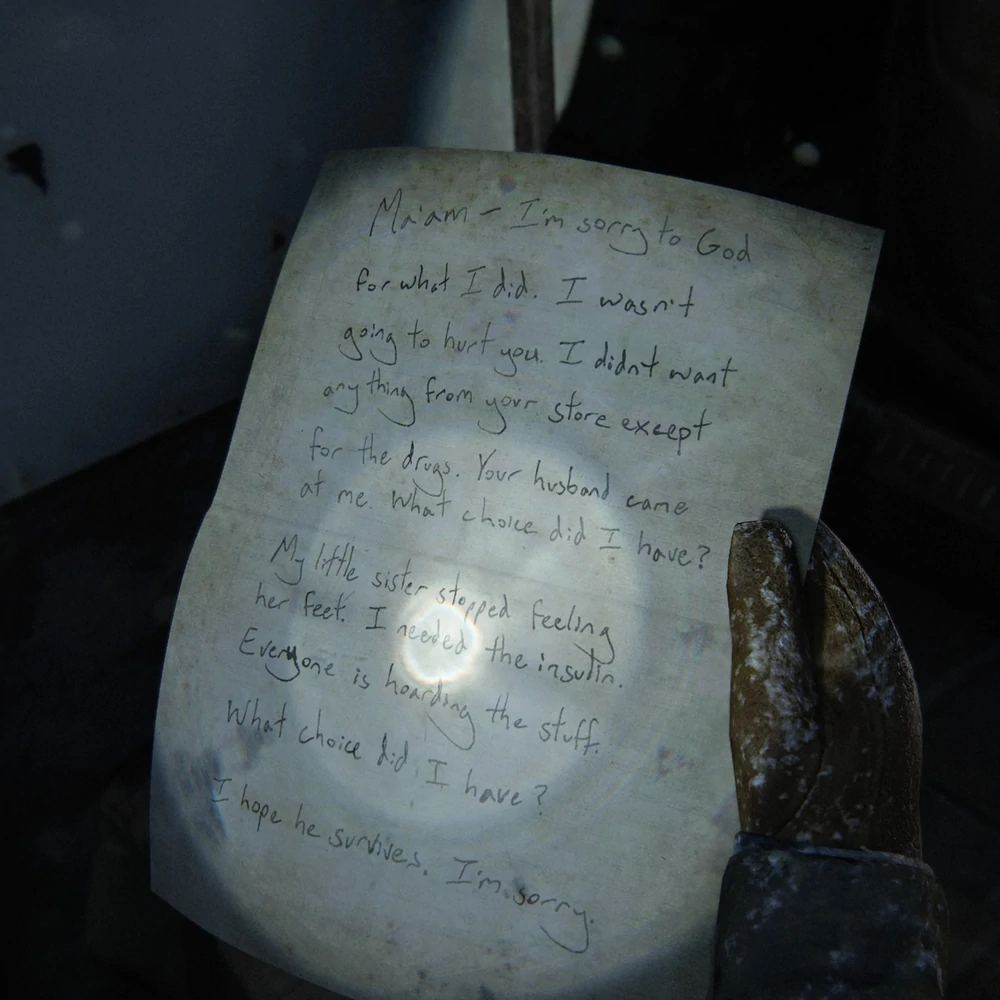 Ma'am – I'm sorry to God
for what I did. I wasn't
going to hurt you. I didn't want
anything from your store except
for the drugs. Your husband came
at me. What choice did I have?
My little sister stopped feeling
her feet. I needed the insulin.
Everyone is hoarding the stuff.
What choice did I have?
I hope he survives. I'm sorry.